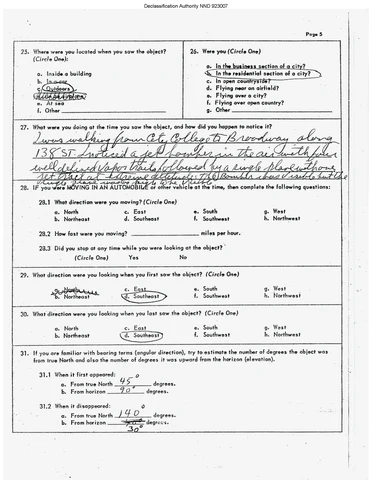 Declassification Authority NND 923007
Page 5
25. Where were you located when you saw the object?
(Circle One):
a. Inside a building
b. In a car
c. Outdoors
e. At sea
f. Other
26. Were you (Circle One)
a. In the business section of a city?
b. In the residential section of a city?
c. In open countryside?
d. Flying near an airfield?
e. Flying over a city?
f. Flying over open country?
g. Other
27. What were you doing at the time you saw the object, and how did you happen to notice it?
I was walking from City College to Broadway along
138 ST. I noticed a jet bomber in the air with four
well defined vapor trails followed by a single plane with one
jet trail at extreme altitude. The bomber was visible but the
single plane
28. IF you were MOVING IN AN AUTOMOBILE or other vehicle at the time, then complete the following questions:
28.1 What direction were you moving? (Circle One)
a. North c. East e. South g. West
b. Northeast d. Southeast f. Southwest h. Northwest
28.2 How fast were you moving? miles per hour.
28.3 Did you stop at any time while you were looking at the object?
(Circle One) Yes No
29. What direction were you looking when you first saw the object? (Circle One)
a. North c. East e. South g. West
b. Northeast d. Southeast f. Southwest h. Northwest
30. What direction were you looking when you last saw the object? (Circle One)
a. North c. East e. South g. West
b. Northeast d. Southeast f. Southwest h. Northwest
31. If you are familiar with bearing terms (angular direction), try to estimate the number of degrees the object was
from true North and also the number of degrees it was upward from the horizon (elevation).
31.1 When it first appeared:
a. From true North 45° degrees.
b. From horizon 90° degrees.
31.2 When it disappeared:
a. From true North 140° degrees.
b. From horizon degrees.
30°